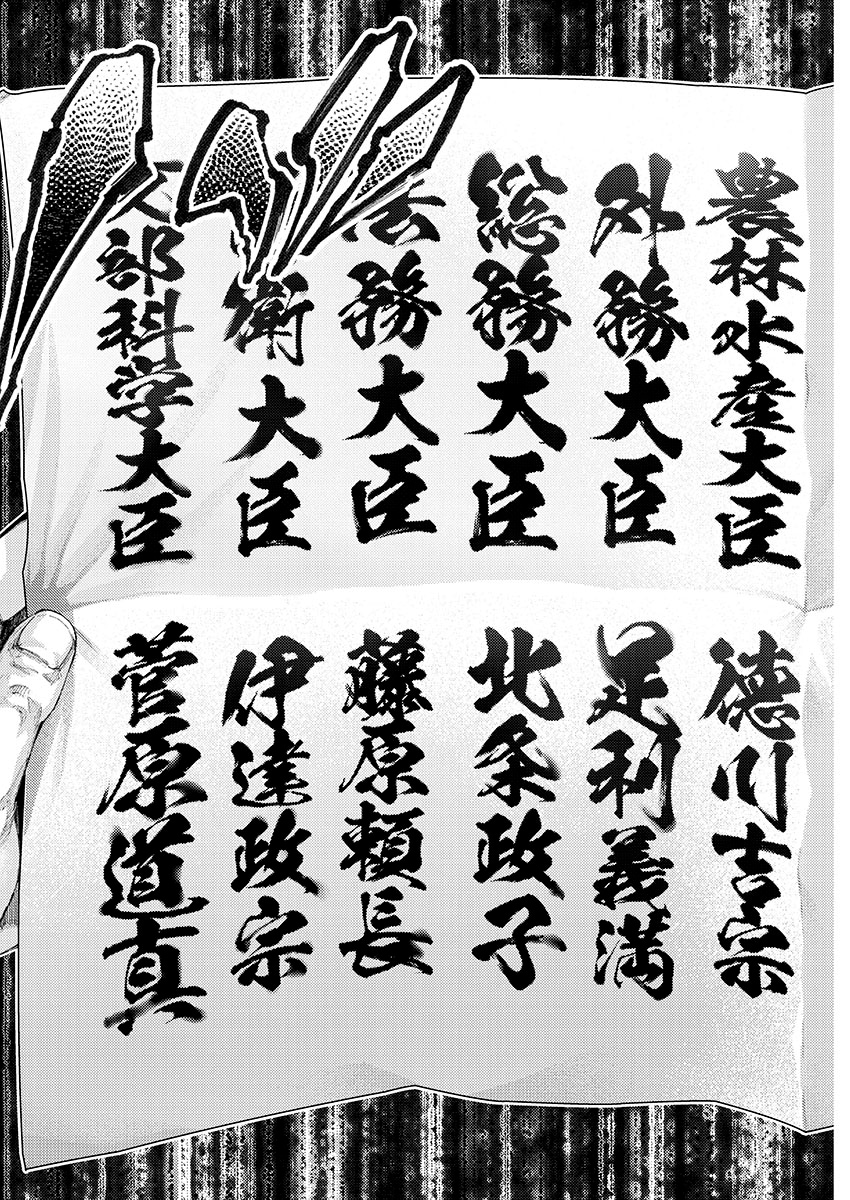 農林水産大臣
徳川吉宗
外務大臣
足利義満
総務大臣
北条政子
法務大臣
藤原頼長
衛大臣
伊達政宗
文部科学大臣
菅原道真